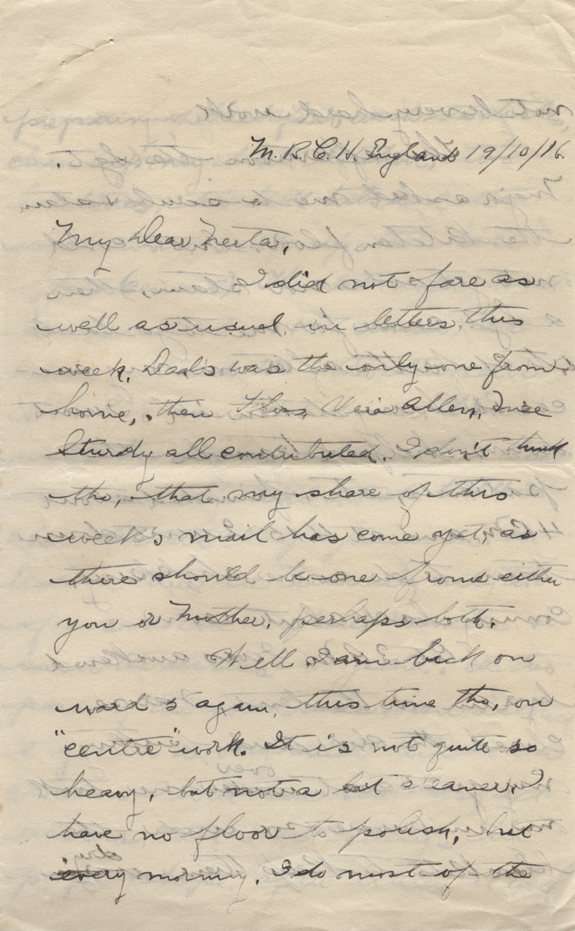 M. R. C. H. England 19/10/16.
My dear Nerta,
I did not fare as
well as usual in letters this
week. Dad's was the only one from
home, then Vera Allen,
Sturdy all contributed. I don't think
tho, that my share of this
week's mail has come yet, as
there should be one from either
you or Mother, perhaps both.
Well I am back on
ward 5 again, this time tho, on
"centre" work. It is not quite so
heavy, but not a bit easier. I
have no floor to polish, but
dry
every morning. I do most of the